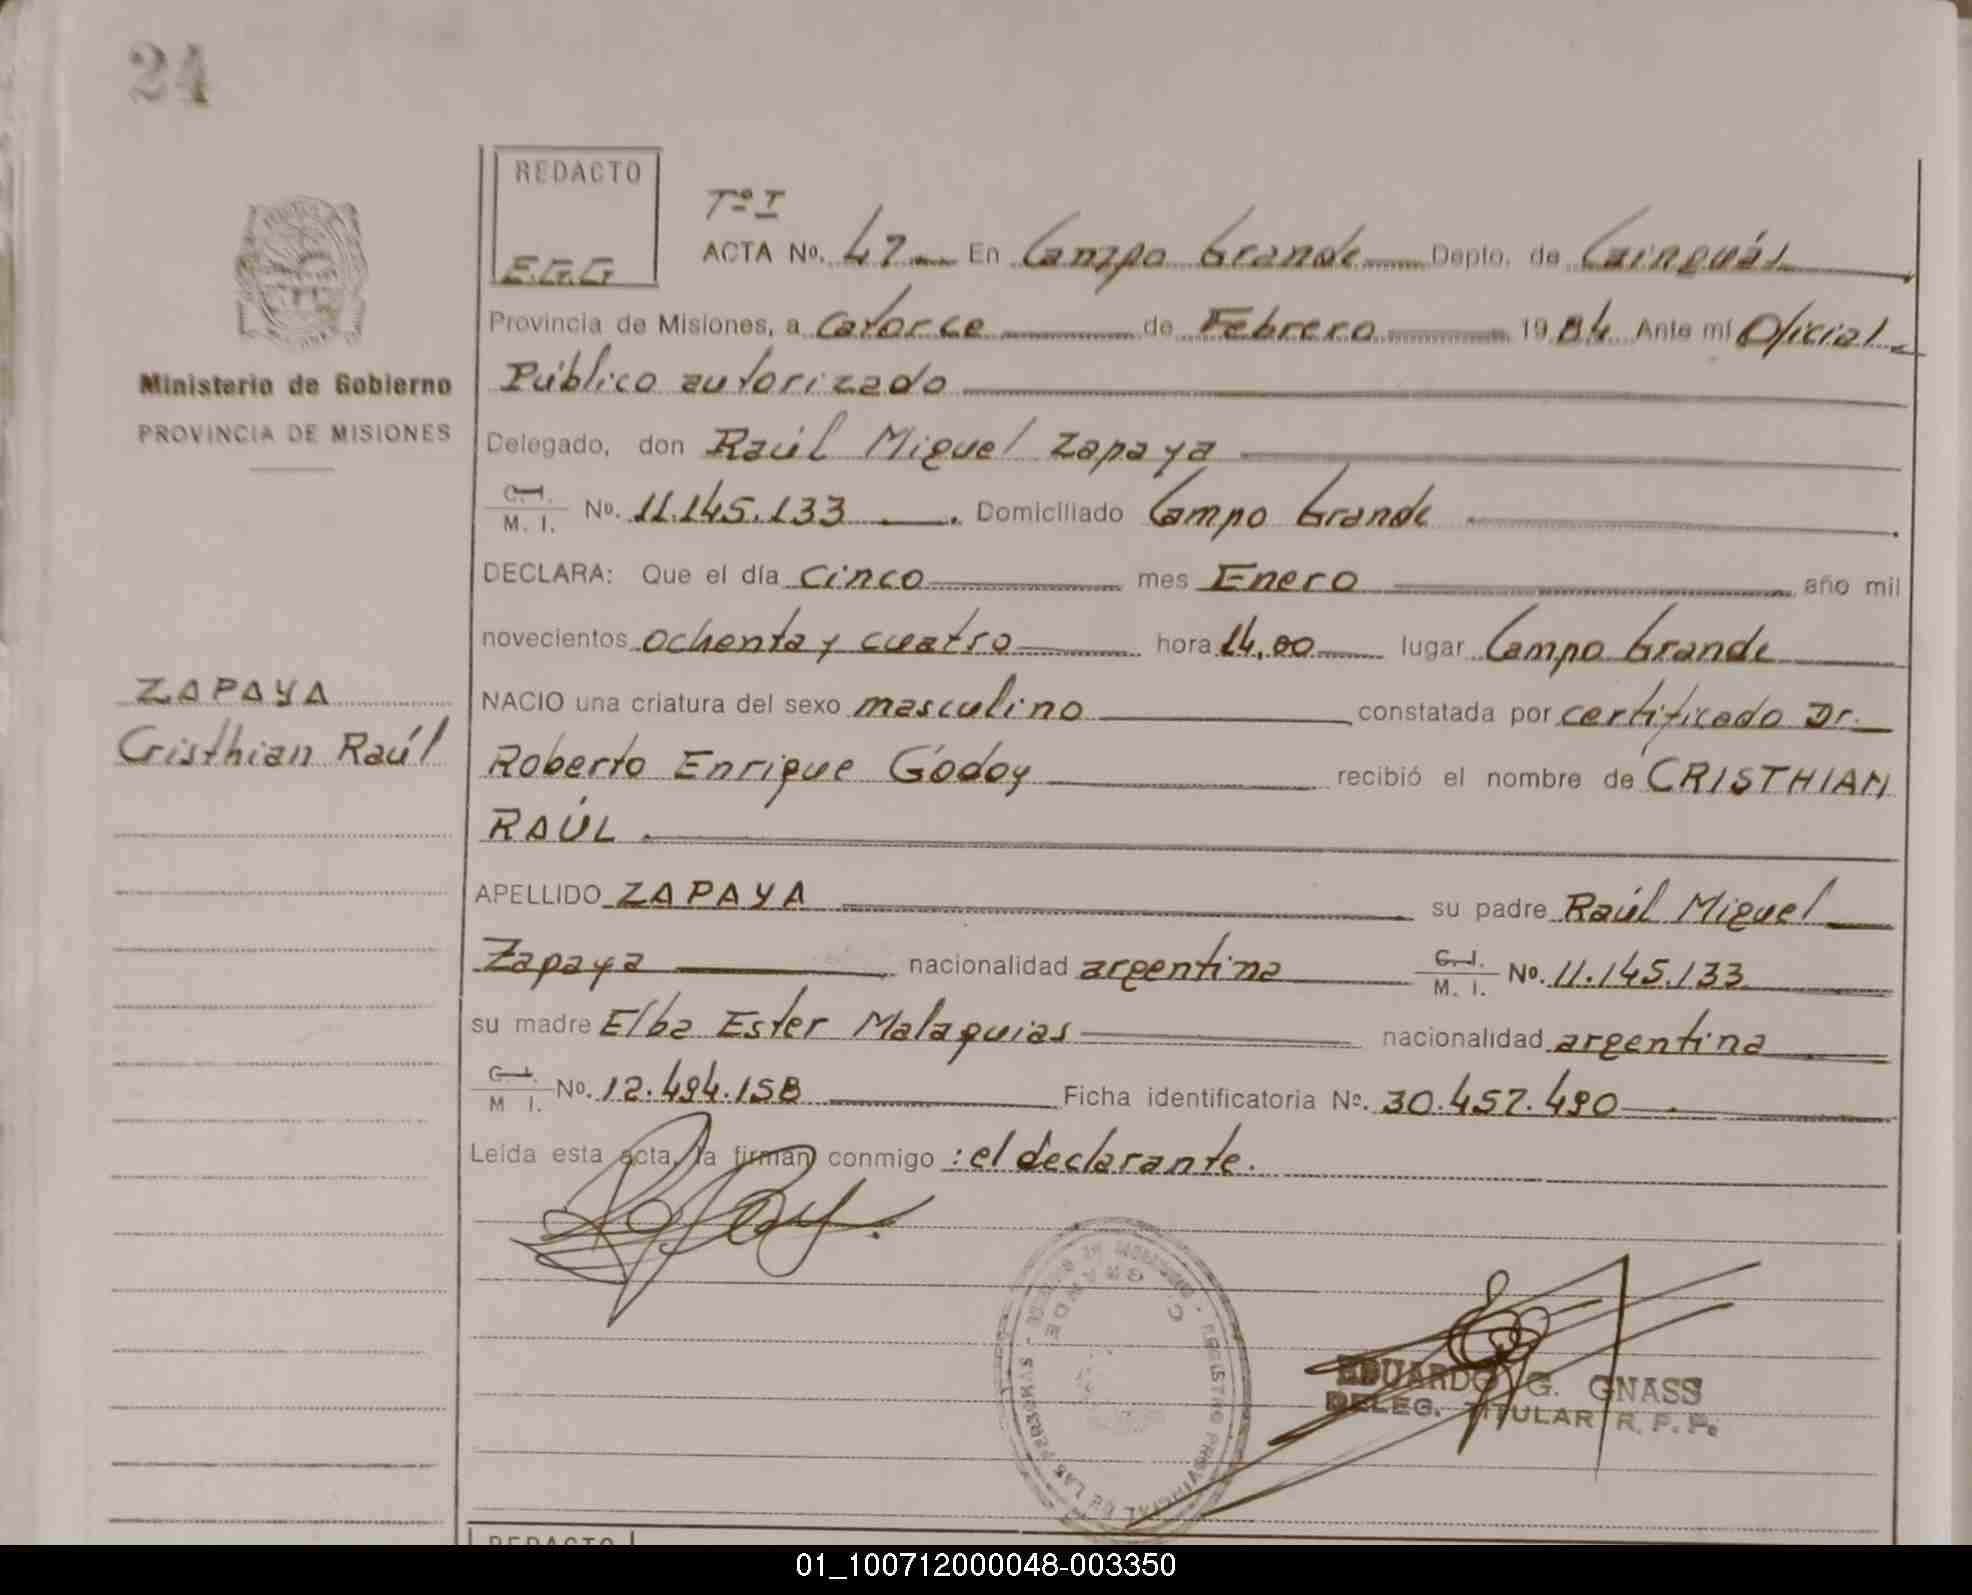 24
REDACTO
E.G.G
Tº I
ACTA Nº. 47 En Campo Grande Depto. de Cainguás
Provincia de Misiones, a Catorce de Febrero 19 84 Ante mí Oficial
Público autorizado
Ministerio de Gobierno
PROVINCIA DE MISIONES
Delegado, don Raúl Miguel Zapaya
C. I.
M. I. Nº. 11.145.133 . Domiciliado Campo Grande
DECLARA: Que el día Cinco mes Enero año mil
novecientos ochenta y cuatro hora 14,00 lugar Campo Grande
ZAPAYA
Cristhian Raúl
NACIO una criatura del sexo masculino constatada por certificado Dr.
Roberto Enrique Godoy recibió el nombre de CRISTHIAN
RAÚL
APELLIDO ZAPAYA su padre Raúl Miguel
Zapaya nacionalidad argentina C. I. M. I. Nº. 11.145.133
su madre Elba Ester Malaquias nacionalidad argentina
C. I.
M I. Nº. 12.494.158 Ficha identificatoria Nº. 30.457.490
Leída esta acta, la firman conmigo : el declarante.
REGISTRO PROVINCIAL DE LAS PERSONAS
C. GRANDE
EDUARDO G. GNASS
DELEG. TITULAR R. P. P.
REDACTO
01_100712000048-003350